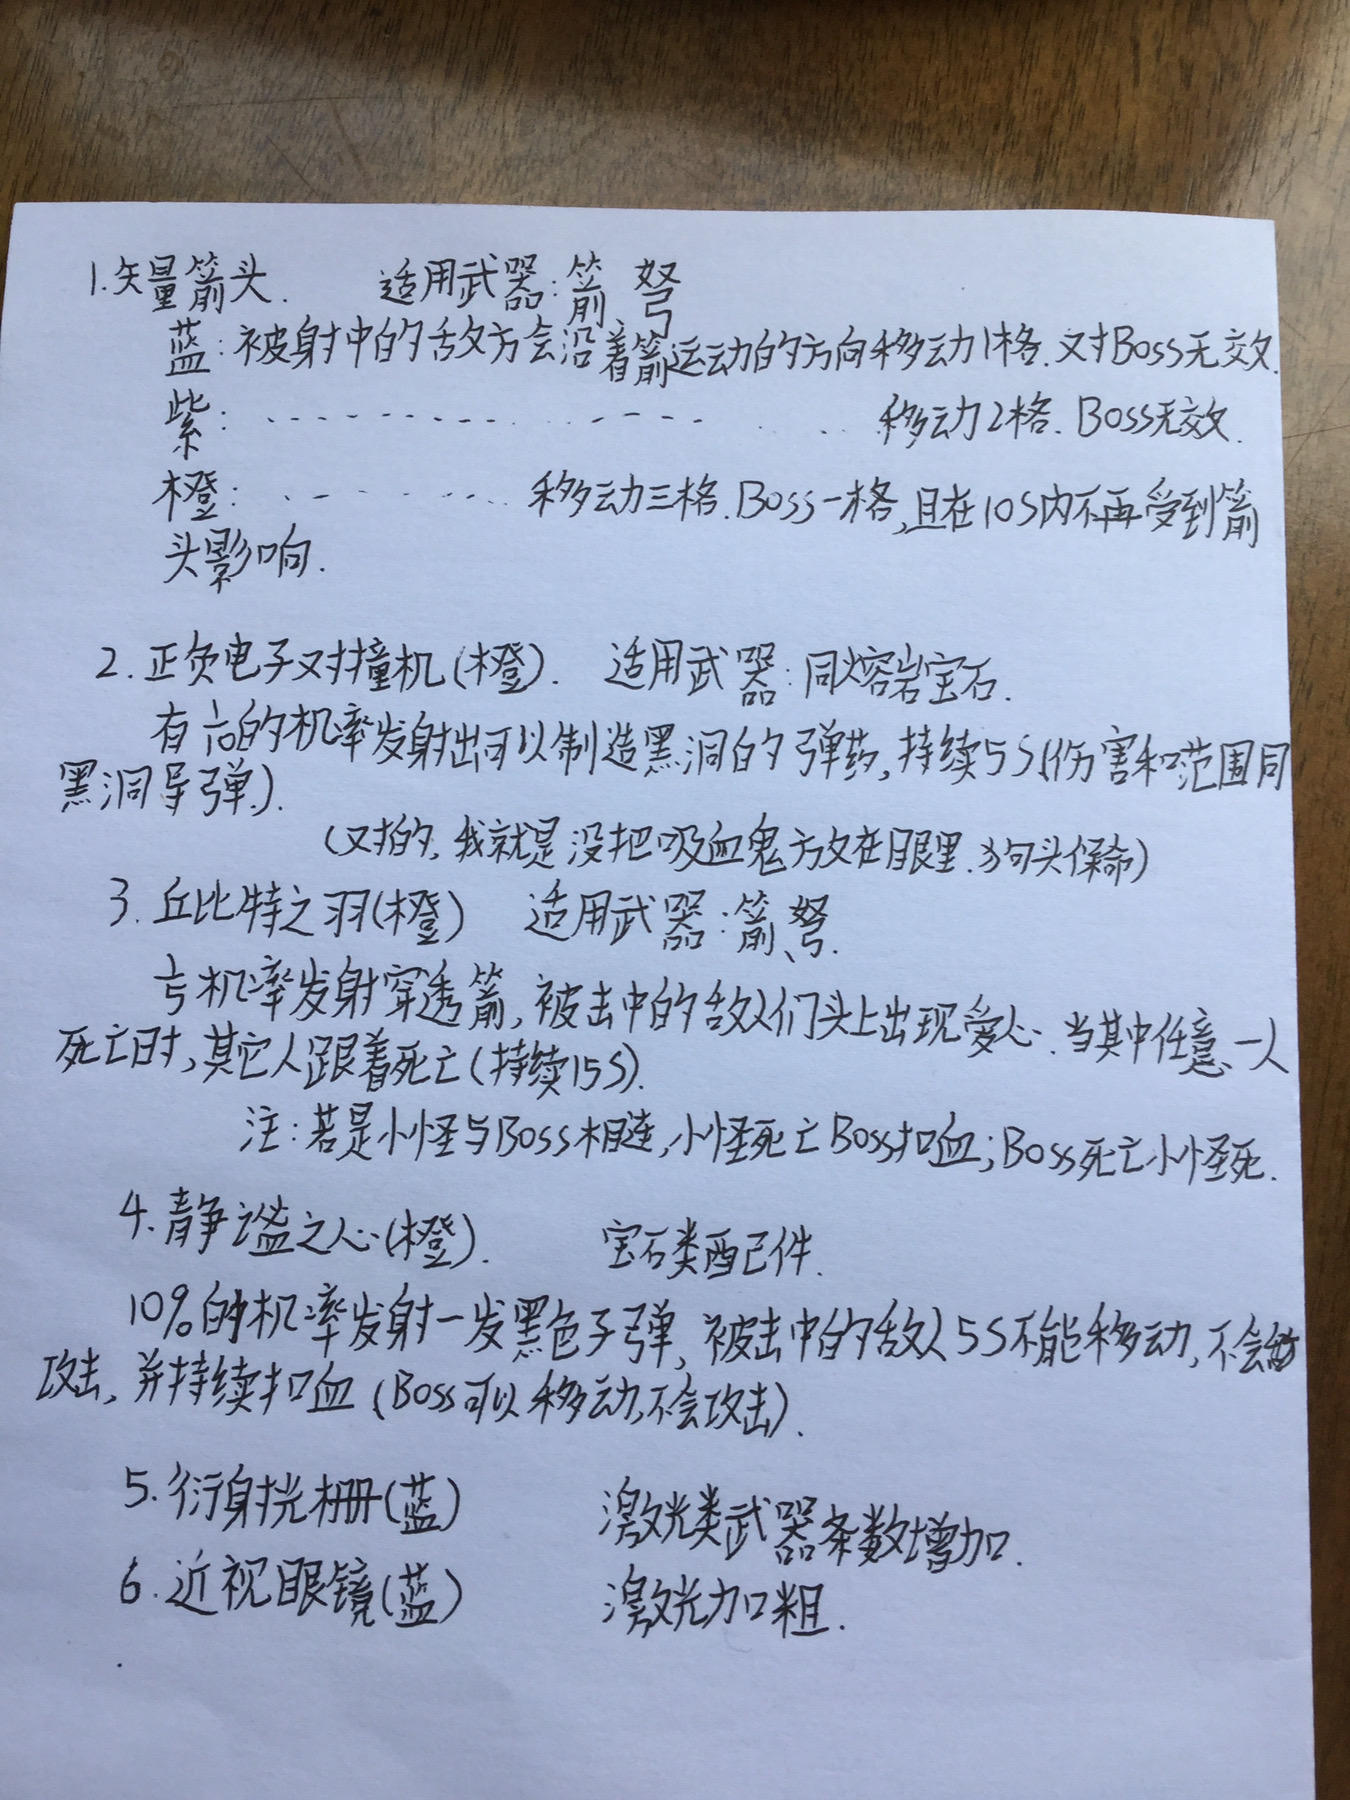 1.矢量箭头. 适用武器:箭、弩
蓝:被射中的敌方会沿着箭运动的方向移动1格.对Boss无效.
紫:................ 移动2格.Boss无效.
橙:......... 移动三格.Boss一格,且在10S内不再受到箭
头影响.
2.正负电子对撞机(橙). 适用武器:同熔岩宝石.
有1/10的机率发射出可以制造黑洞的弹药,持续5S(伤害和范围同
黑洞导弹).
(对的,我就是没把吸血鬼放在眼里.狗头保命)
3.丘比特之羽(橙) 适用武器:箭、弩.
1/5机率发射穿透箭,被击中的敌人们头上出现爱心.当其中任意一人
死亡时,其它人跟着死亡(持续15S).
注:若是小怪与Boss相连,小怪死亡Boss扣血;Boss死亡小怪死.
4.静谧之心(橙). 宝石类配件.
10%的机率发射一发黑色子弹,被击中的敌人5S不能移动,不会
攻击,并持续扣血(Boss可以移动,不会攻击).
5.衍射光栅(蓝) 激光类武器条数增加.
6.近视眼镜(蓝) 激光加粗.